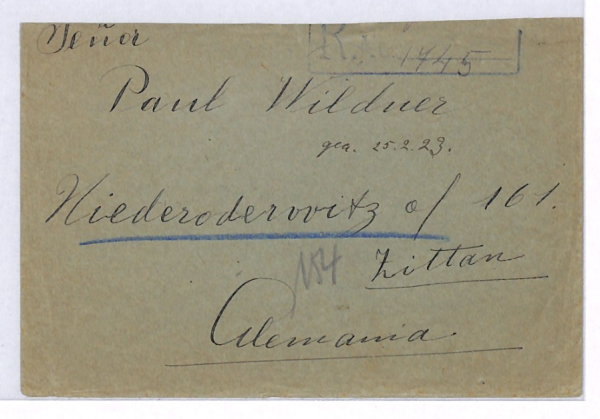 Señor
R. 1745
Paul Wildner
gea. 25.2.23.
Niederoderwitz o/ 161.
154
Zittau
Alemania.